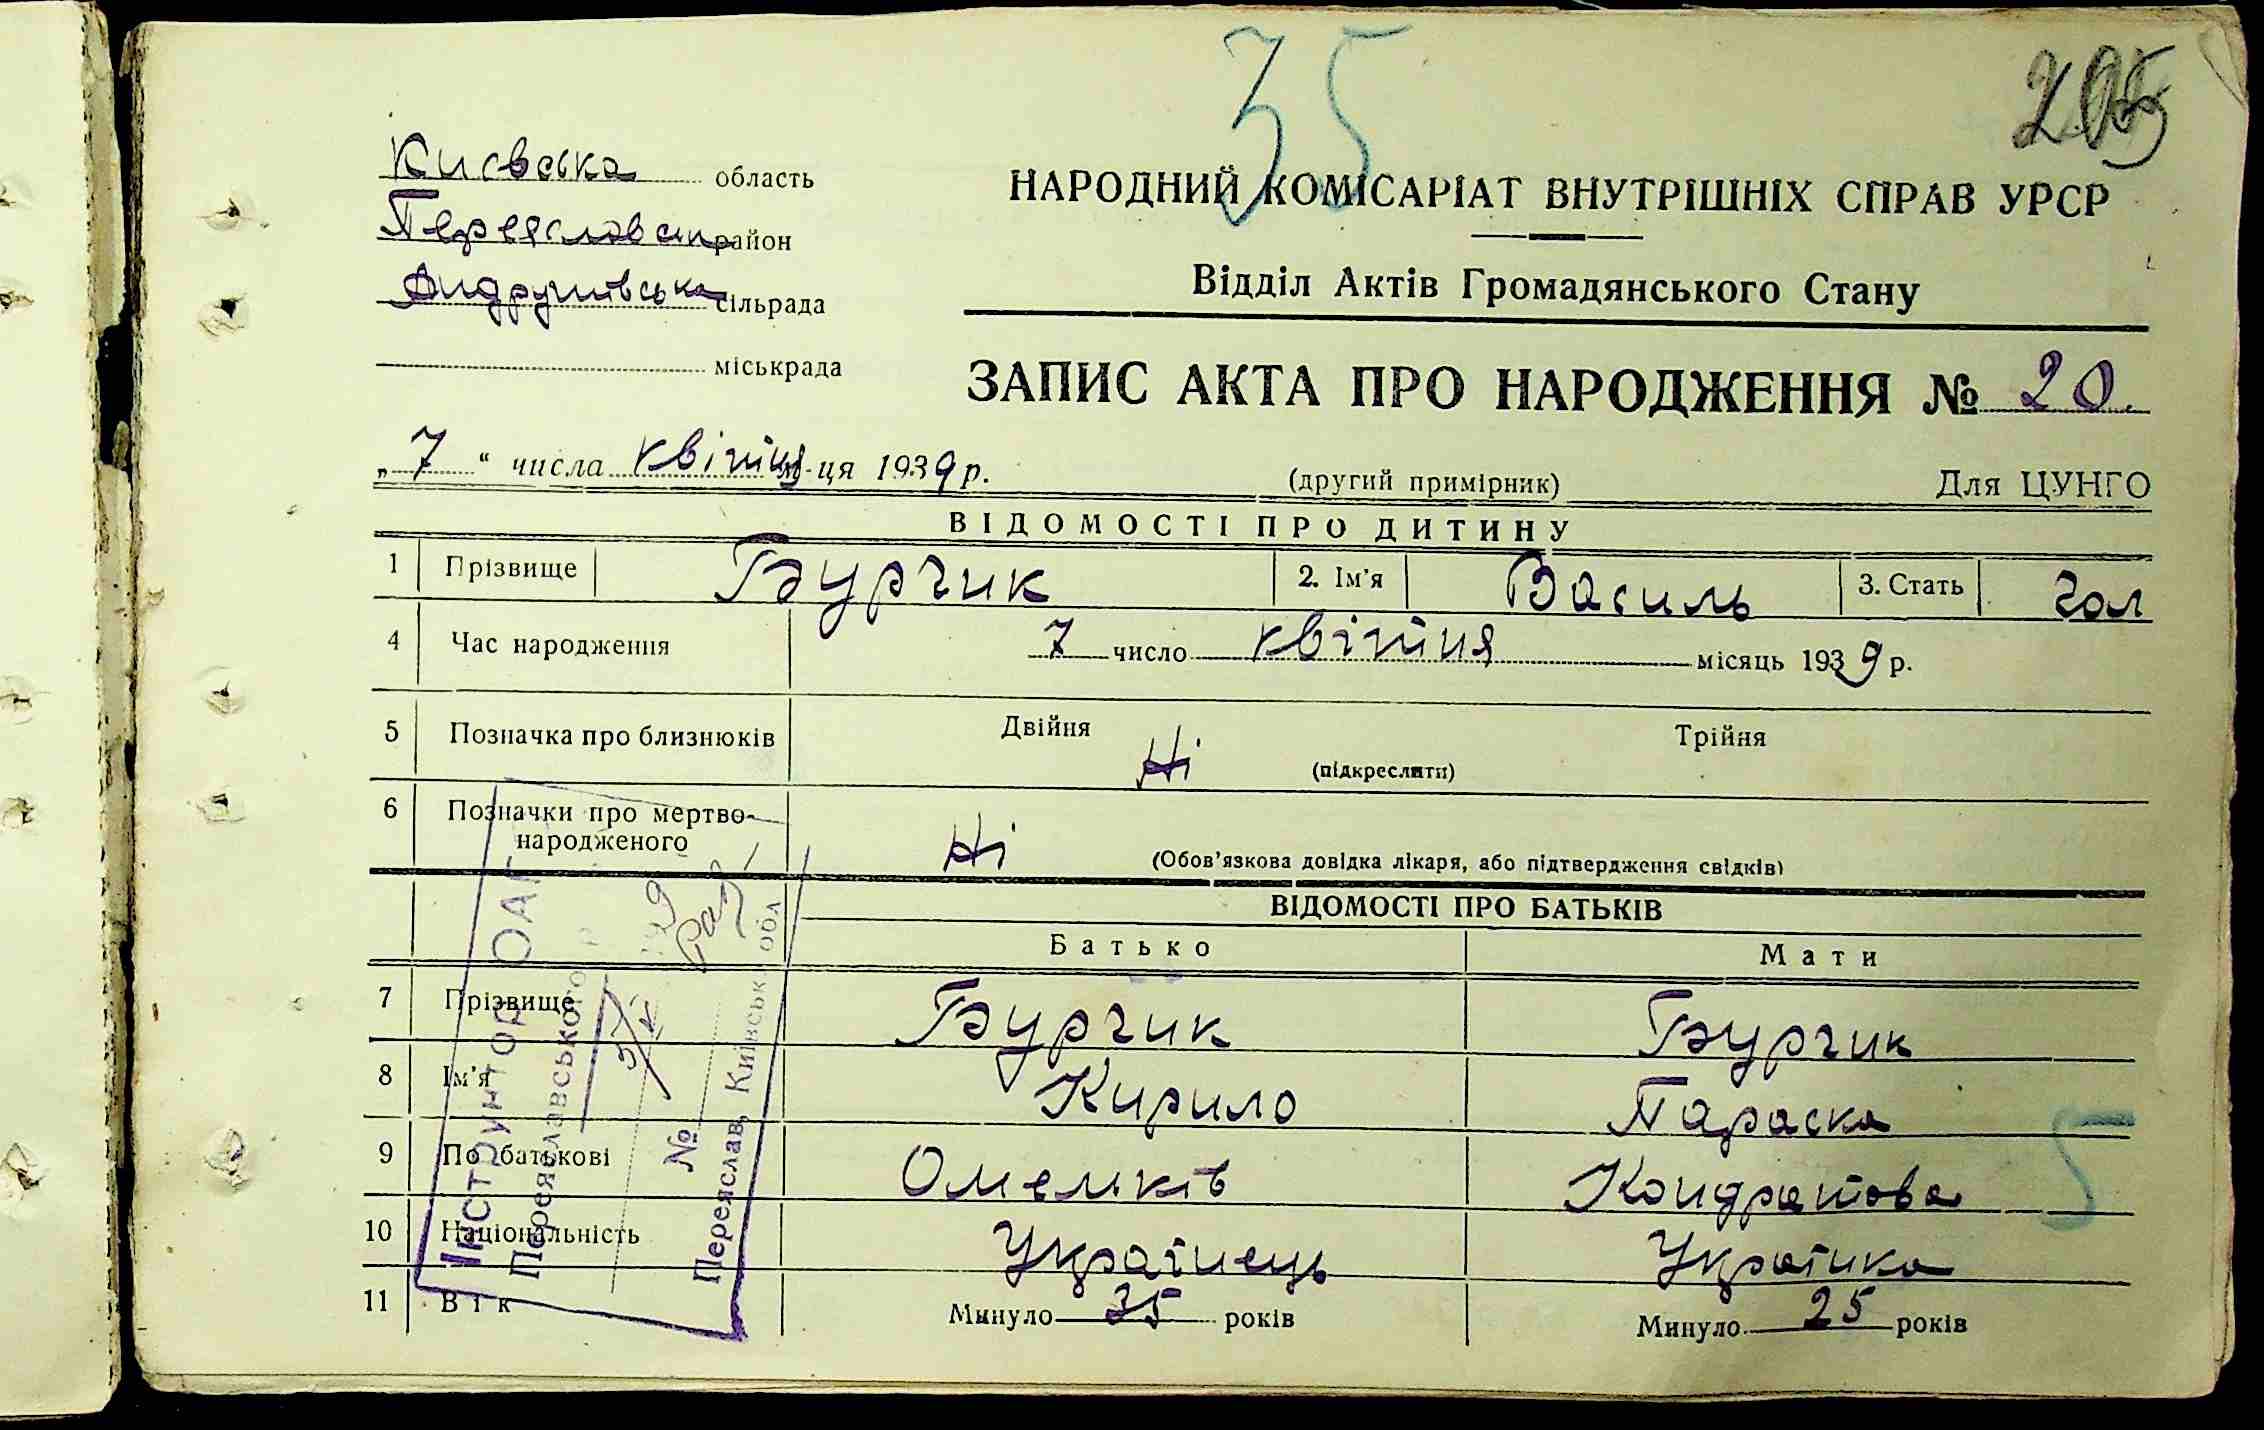 35
205
Киевська область
Переяславськ район
Андрушівська сільрада
міськрада
НАРОДНИЙ КОМІСАРІАТ ВНУТРІШНІХ СПРАВ УРСР
Відділ Актів Громадянського Стану
ЗАПИС АКТА ПРО НАРОДЖЕННЯ № 20.
„7“ числа квітня м-ця 1939 р. (другий примірник) Для ЦУНГО
ВІДОМОСТІ ПРО ДИТИНУ
1 Прізвище Бурчик 2. Ім'я Василь 3. Стать чол
4 Час народження 7 число квітня місяць 1939 р.
5 Позначка про близнюків Двійня Ні (підкреслити) Трійня
6 Позначки про мертво-
народженого Ні (Обов'язкова довідка лікаря, або підтвердження свідків)
ВІДОМОСТІ ПРО БАТЬКІВ
Батько Мати
7 Прізвище Бурчик Бурчик
8 Ім'я Кирило Параска
9 По батькові Омельків Кондратова
10 Національність Українець Українка
11 Вік Минуло 35 років Минуло 25 років
5
ІНСТРУКТОР ОАГ
Переяславського
№
Переяслав, Київськ. обл